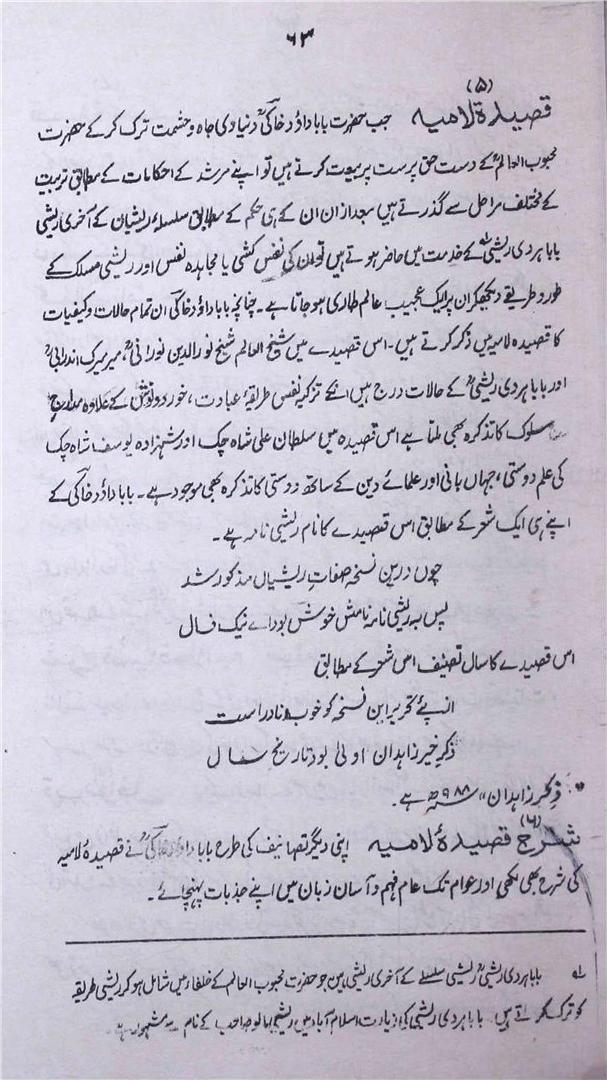 ۶۳
(۵)
قصیدۃ لامیہ جب حضرت بابا داؤد خاکیؒ دنیاوی جاہ و حشمت ترک کر کے حضرت
محبوب العالمؒ کے دست حق پرست پر بیعت کرتے ہیں تو اپنے مرشد کے احکامات کے مطابق تربیت
کے مختلف مراحل سے گذرتے ہیں بعد ازاں ان کے ہی حکم کے مطابق سلسلۂ ریشیان کے آخری ریشی
بابا ہردی ریشیؒ کے خدمت میں حاضر ہوتے ہیں تو ان کی نفس کشی یا مجاہدہ نفس اور ریشی مسلک کے
طور و طریقے دیکھکر ان پر ایک عجیب عالم طاری ہو جاتا ہے۔ چنانچہ بابا داؤد خاکیؒ ان تمام حالات و کیفیات
کا قصیدہ لامیہ میں ذکر کرتے ہیں۔ اس قصیدے میں شیخ العالم شیخ نور الدین نورانیؒ، میر میرک اندرابیؒ
اور بابا ہردی ریشیؒ کے حالات درج ہیں انکے تزکیہ نفس طریقۂ عبادت، خورد و نوش کے علاوہ مدارج
سلوک کا تذکرہ بھی ملتا ہے اس قصیدہ میں سلطان علی شاہ چک اور شہزادہ یوسف شاہ چک
کی علم دوستی، جہاں بانی اور علمائے دین کے ساتھ دوستی کا تذکرہ بھی موجود ہے۔ بابا داؤد خاکیؒ کے
اپنے ہی ایک شعر کے مطابق اس قصیدے کا نام ریشی نامہ ہے۔
چوں درین نسخہ صفات ریشیاں مذکور شد
پس بہ ریشی نامہ نامش خوش بود اے نیک فال
اس قصیدے کا سال تصنیف اس شعر کے مطابق
از پئے تحریر این نسخہ کو خوب و نادر است
ذکر خیر زاہدان اولیٰ بود تاریخ سال
"ذکر زاہدان" سنہ ۹۸۸ھ ہے۔
(۶)
شرح قصیدۂ لامیہ اپنی دیگر تصانیف کی طرح بابا داؤد خاکیؒ نے قصیدۂ لامیہ
کی شرح بھی لکھی اور عوام تک عام فہم و آسان زبان میں اپنے جذبات پہنچائے۔
لہ بابا ہردی ریشیؒ ریشی سلسلے کے آخری ریشی ہیں جو حضرت محبوب العالم کے خلفاء میں شامل ہو کر ریشی طریقہ
کو ترک کرتے ہیں۔ بابا ہردی ریشی کی زیارت اسلام آباد میں ریشی مالو صاحب کے نام سے مشہور ہے۔